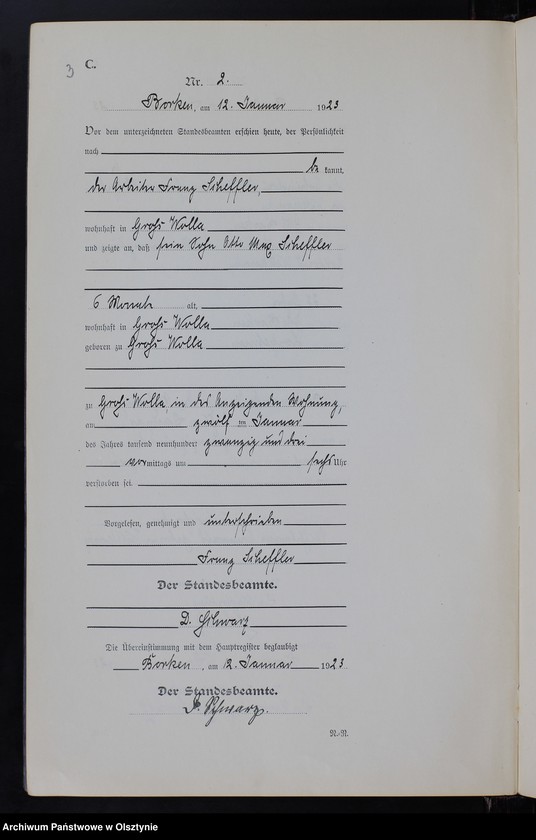 3
C.
Nr. 2.
Borken, am 12. Januar 1923
Vor dem unterzeichneten Standesbeamten erschien heute, der Persönlichkeit
nach
be kannt,
der Arbeiter Franz Scheffler,
wohnhaft in Groß Wolla
und zeigte an, daß sein Sohn Otto Max Scheffler
6 Monate alt,
wohnhaft in Groß Wolla
geboren zu Groß Wolla
zu Groß Wolla, in des Anzeigenden Wohnung,
am zwölf ten Januar
des Jahres tausend neunhundert zwanzig und drei
vormittags um sechs Uhr
verstorben sei.
Vorgelesen, genehmigt und unterschrieben
Franz Scheffler
Der Standesbeamte.
D. Schwarz
Die Übereinstimmung mit dem Hauptregister beglaubigt
Borken, am 12. Januar 1923
Der Standesbeamte.
D. Schwarz.
N.-N.
Archiwum Państwowe w Olsztynie